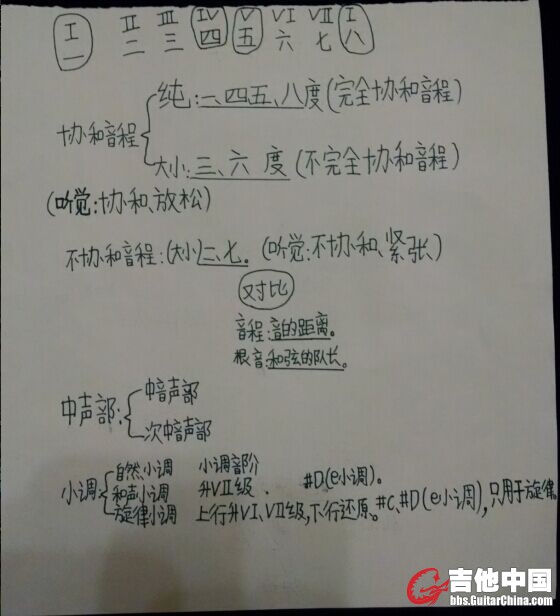 I II III IV V VI VII I
一 二 三 四 五 六 七 八
纯:一、四五、八度(完全协和音程)
协和音程
大小:三、六度(不完全协和音程)
(听觉:协和、放松)
不协和音程:(大小)二、七。(听觉:不协和、紧张)
对比
音程:音的距离。
根音:和弦的队长。
中音声部
中声部:
次中音声部
自然小调 小调音阶
小调 和声小调 升VII级. #D(e小调)。
旋律小调 上行升VI、VII级,下行还原。#C、#D(e小调),只用于旋律。
吉他中国
bbs.GuitarChina.com